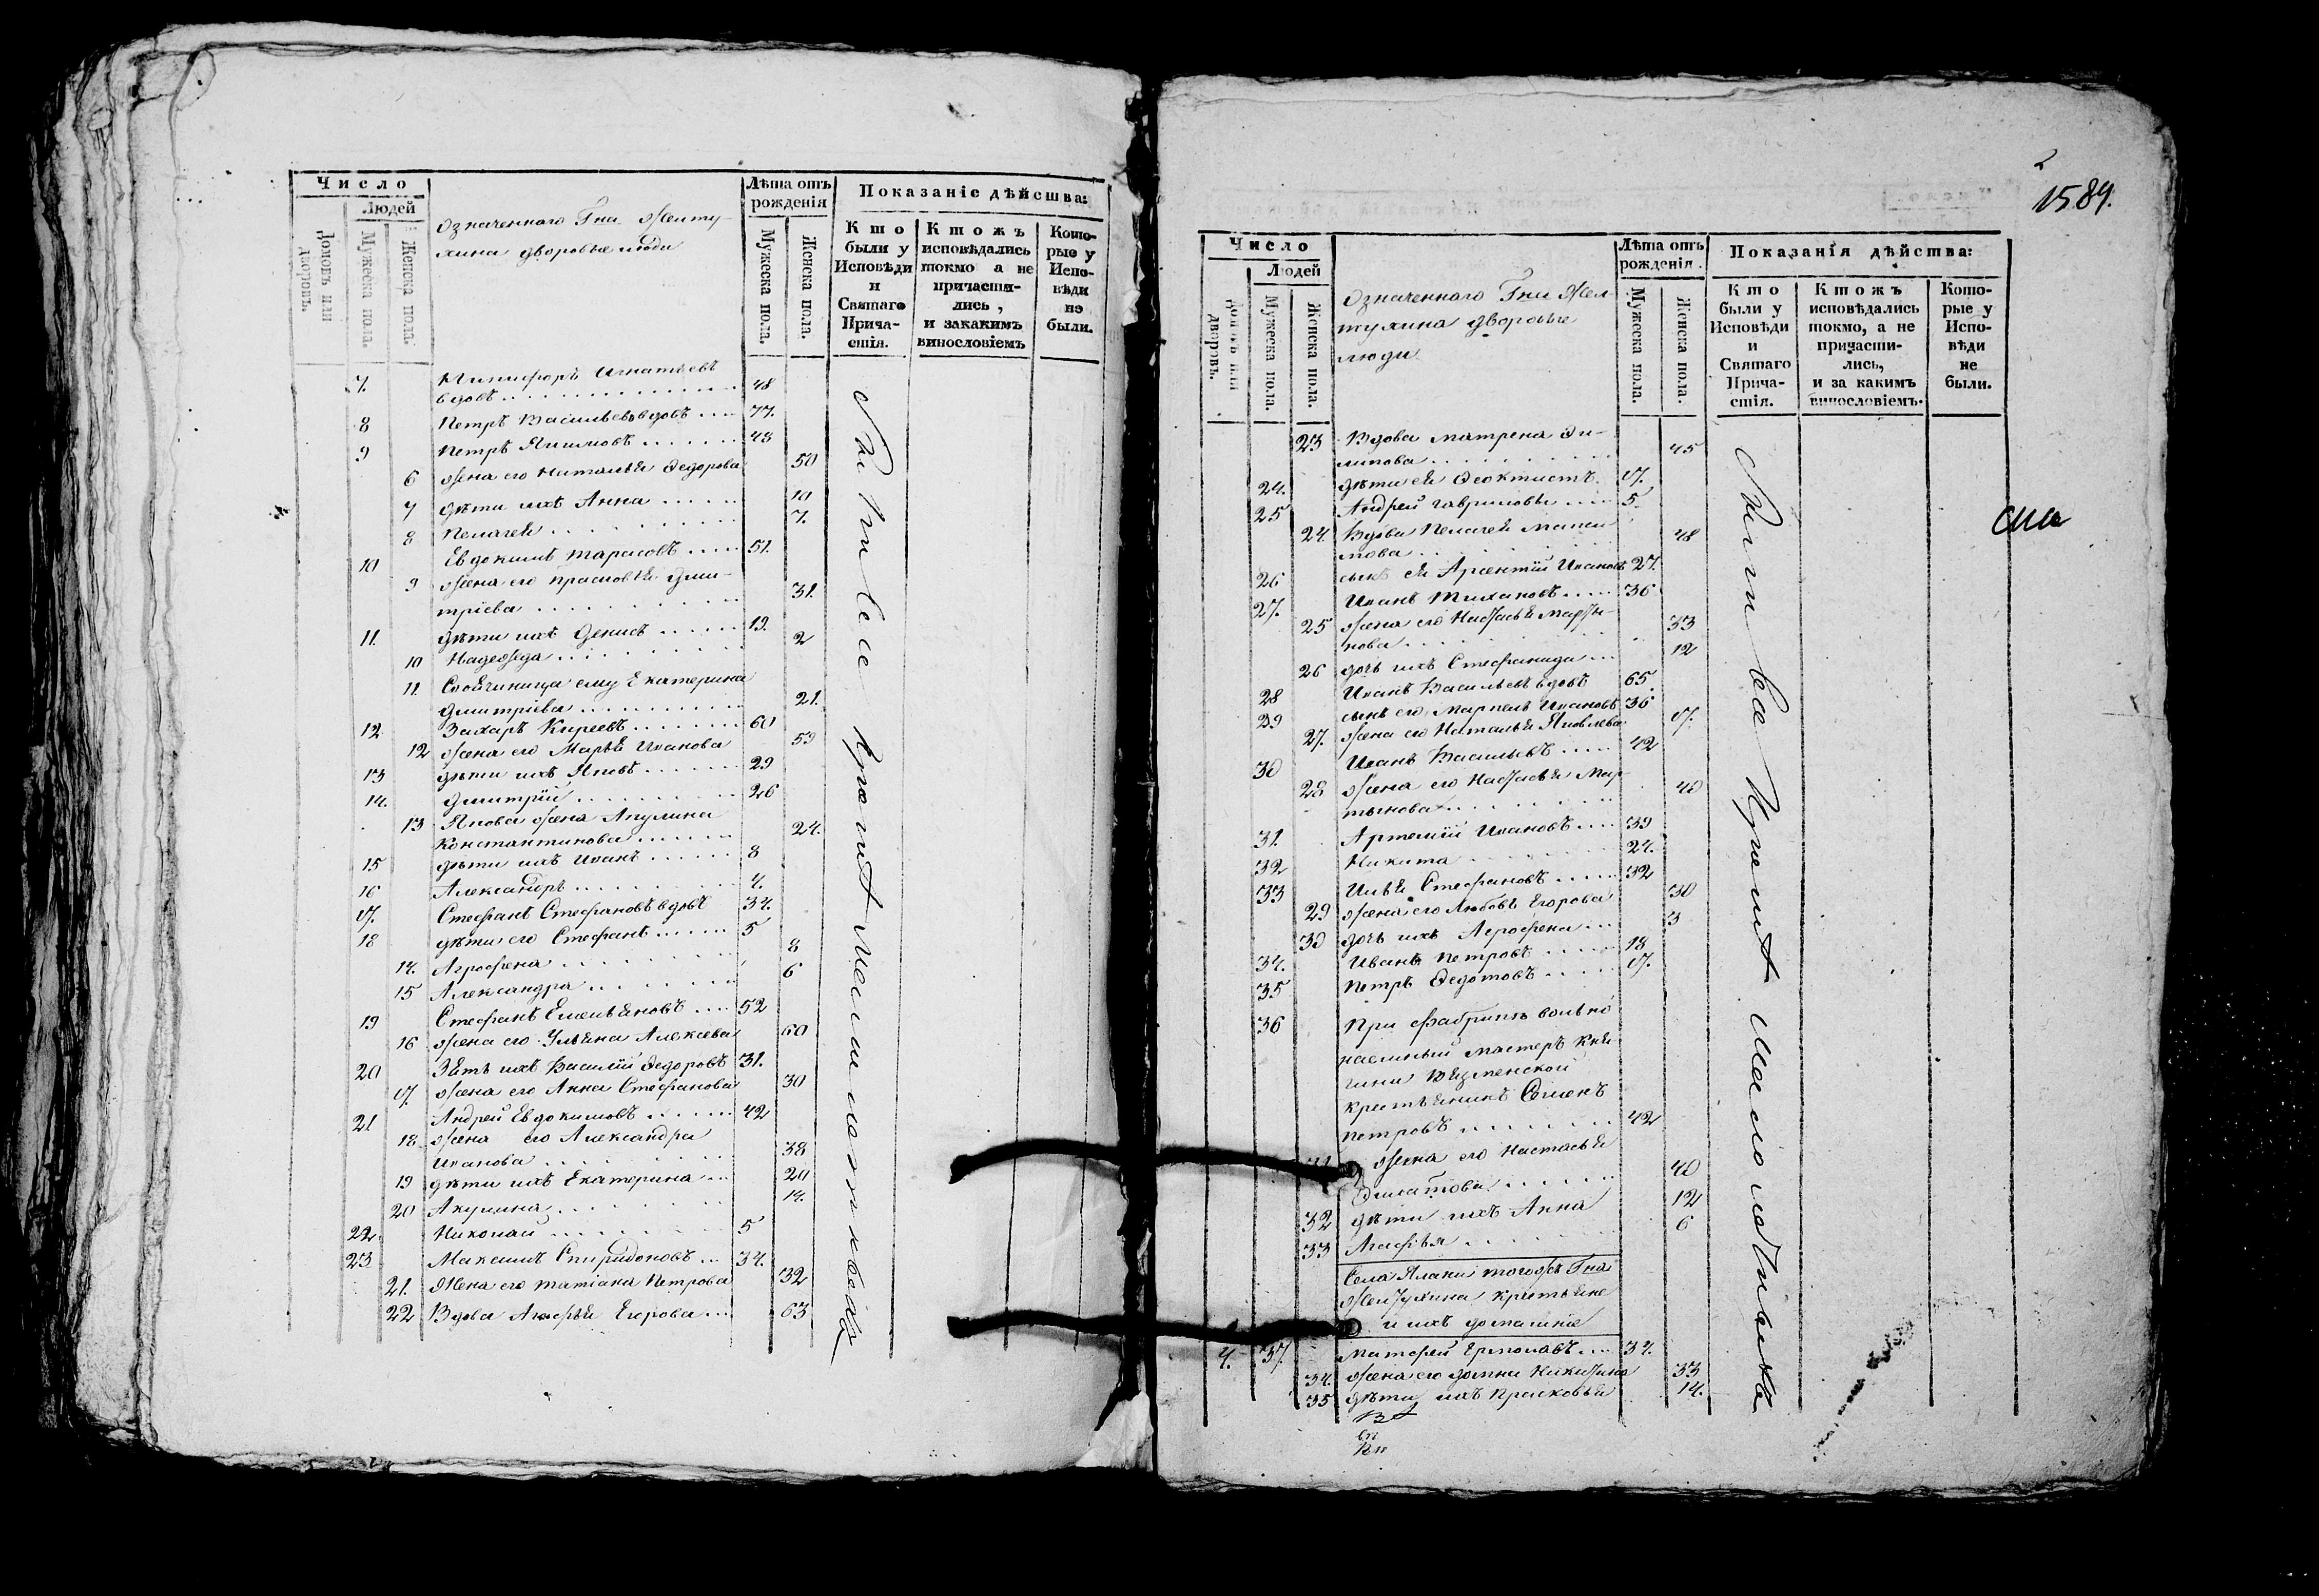 Число
Людей
Домовъ или дворовъ.
Мужеска пола.
Женска пола.
Означеннаго Гна Желту-
хина дворовые люди
Лѣта отъ рожденія
Мужеска пола.
Женска пола.
Показаніе дѣйства:
Кто были у Исповѣди и Святаго Прича-стія.
Ктожъ исповѣдались токмо а не причасти-лись, и закакимъ винословіемъ
Кото-рые у Испо-вѣди не были.
7. Никифоръ Игнатьевъ
вдовъ 48
8 Петръ Васильевъ вдовъ 77.
9 Петръ 48
6 жена его Наталья Федорова 50
7 дѣти ихъ Анна 10
8 Пелагея 7.
10 Евдокимъ Тарасовъ 51.
9 жена его Прасковья Дми-
тріева 31.
11. дѣти ихъ Денисъ 19.
10 Надежда 2
11. Своячиница ему Екатерина
Дмитріева 21.
12 Захаръ Киреевъ 60
12 жена его Марья Иванова 59
13 дѣти ихъ Яковъ 29
14. Дмитрій 26
13 Якова жена Акулина
Константинова 24.
15 дѣти ихъ Иванъ 8
16 Александръ 4.
17. Стефанъ Стефановъ вдовъ 34.
18 дѣти его Стефанъ 5
14. Агрофена 8
15 Александра 6
19 Стефанъ Емельяновъ 52
16 жена его Ульяна Алексѣева 60
20 Зять ихъ Василій Федоровъ 31.
17. жена его Анна Стефанова 30
21 Андрей Евдокимовъ 42
18. жена его Александра
Иванова 38
19 дѣти ихъ Екатерина 20
20 Акулина 14.
22. Николай 5
23 Максимъ Спиридоновъ 34.
21. Жена его Татіана Петрова 32
22 Вдова Агафья Егорова 63
1589.
Число
Людей
Домовъ или дворовъ.
Мужеска пола.
Женска пола.
Означеннаго Гна Жел
тухина дворовые
люди
Лѣта отъ рожденія.
Мужеска пола.
Женска пола.
Показанія дѣйства:
Кто были у Исповѣди и Святаго Прича-стія.
Ктожъ исповѣдались токмо, а не причасти-лись, и за какимъ винословіемъ.
Кото-рые у Испо-вѣди не были.
23 Вдова Матрена Фи-
липова 45
24. дѣти ея Феоктистъ 17.
25 Андрей Гавриловы 5
24. Вдова Пелагея Макси
мова 48
26 сынъ ея Арсентій Ивановъ 27.
27. Иванъ Тихановъ 36
25 жена его Настасья Марты-
нова 33
26 дочь ихъ Стефанида 12
28 Иванъ Васильевъ вдовъ 65
29 сынъ его Маркелъ Ивановъ 36
27. жена его Наталья Яковлева 17.
30 Иванъ Васильевъ 42
28 жена его Настасья Мар-
тынова 40
31. Артемій Ивановъ 39
32 Никита 24.
33 Илья Стефановъ 32
29 жена его Любовь Егорова 30
30 дочь ихъ Агрофена 3
34. Иванъ Петровъ 18
35 Петръ Федотовъ 17.
36 При фабрикѣ вольно
наемный мастеръ Кня
гини Вяземской
крестьянинъ Семенъ
Петровъ 42
жена его Настасья
40
32 дѣти ихъ Анна 12
33 Агафья 6
Села тогожъ Гна
Желтухина крестьяне
и ихъ домашніе
4. 37. Матфей Ермолаевъ 34.
34. жена его Домна Никитина 33
35 дѣти ихъ Прасковья 14.